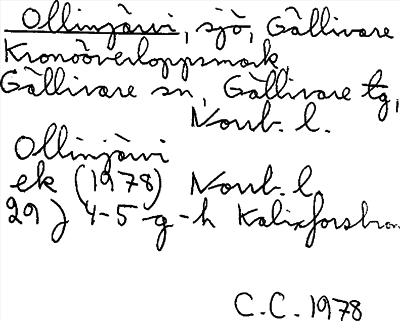 Ollinjärvi, sjö, Gällivare
Kronoöverloppsmark,
Gällivare sn, Gällivare tg,
Norrb. l.
Ollinjärvi
ek (1978) Norrb. l.
29 J 4-5 g-h Kalixforsbron
C.C. 1978